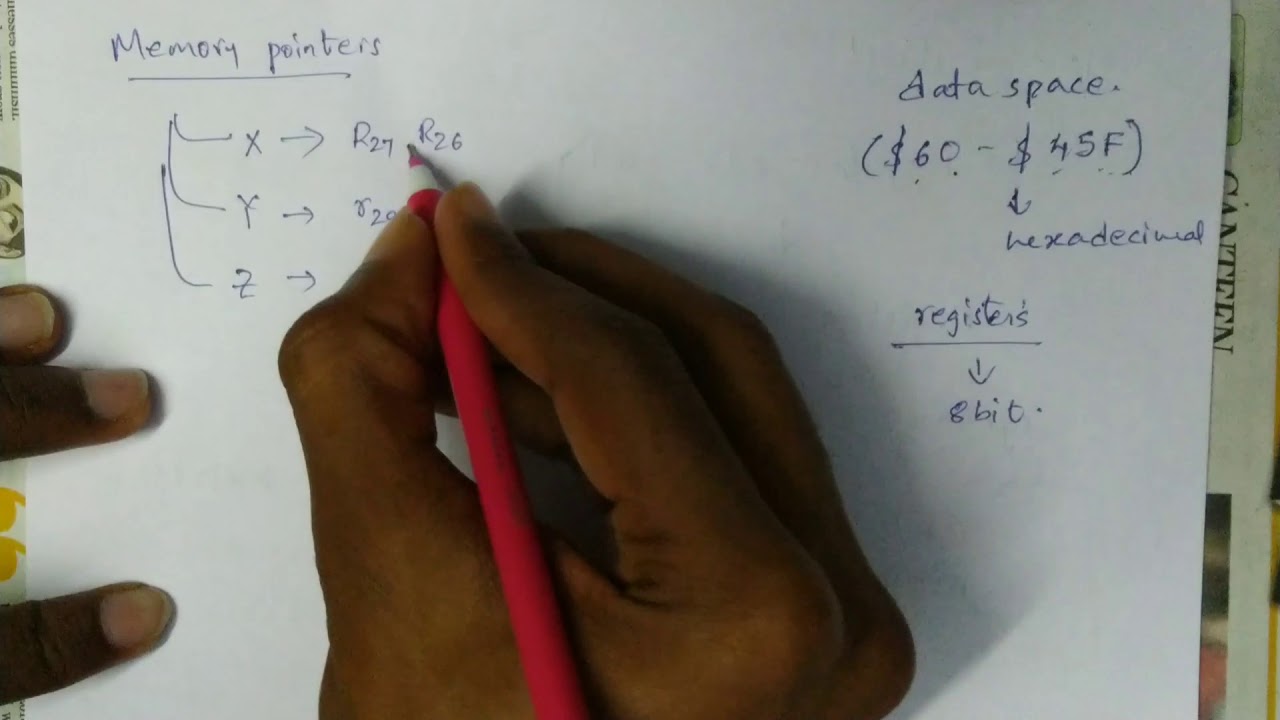 Memory pointers
X → R27 R26
Y → r29
Z →
data space.
($60 - $45F)
↓
hexadecimal
registers
↓
8bit.
CANTEEN